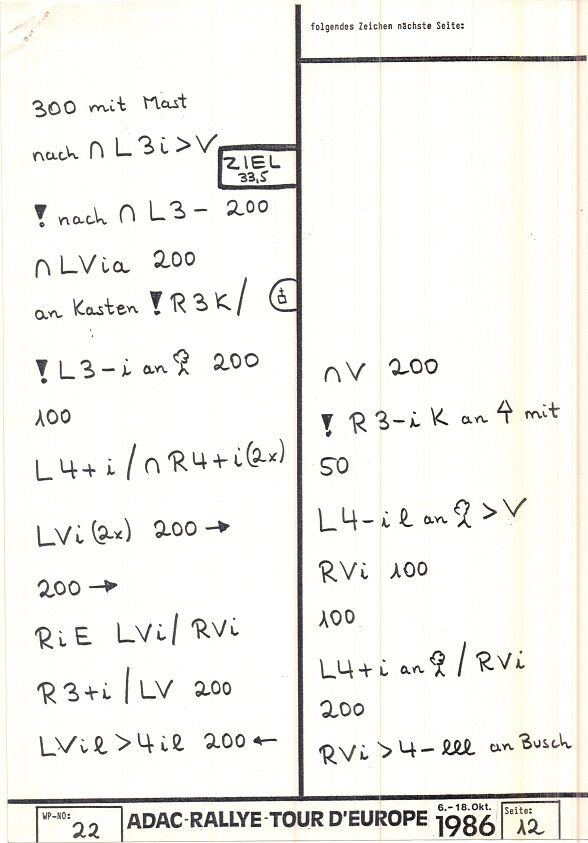 folgendes Zeichen nächste Seite:
300 mit Mast
nach ∩ L3i > V
ZIEL
33,5
! nach ∩ L3- 200
∩ LVia 200
an Kasten ! R3K/
! L3-i an 200
100
L4+i / ∩ R4+i (2x)
LVi (2x) 200 →
200 →
RiE LVi / RVi
R3+i / LV 200
LVil > 4il 200 ←
∩V 200
! R3-i K an mit
50
L4-il an > V
RVi 100
100
L4+i an / RVi
200
RVi > 4-lll an Busch
WP-NO:
22
ADAC-RALLYE-TOUR D'EUROPE
6.-18.Okt.
1986
Seite:
12